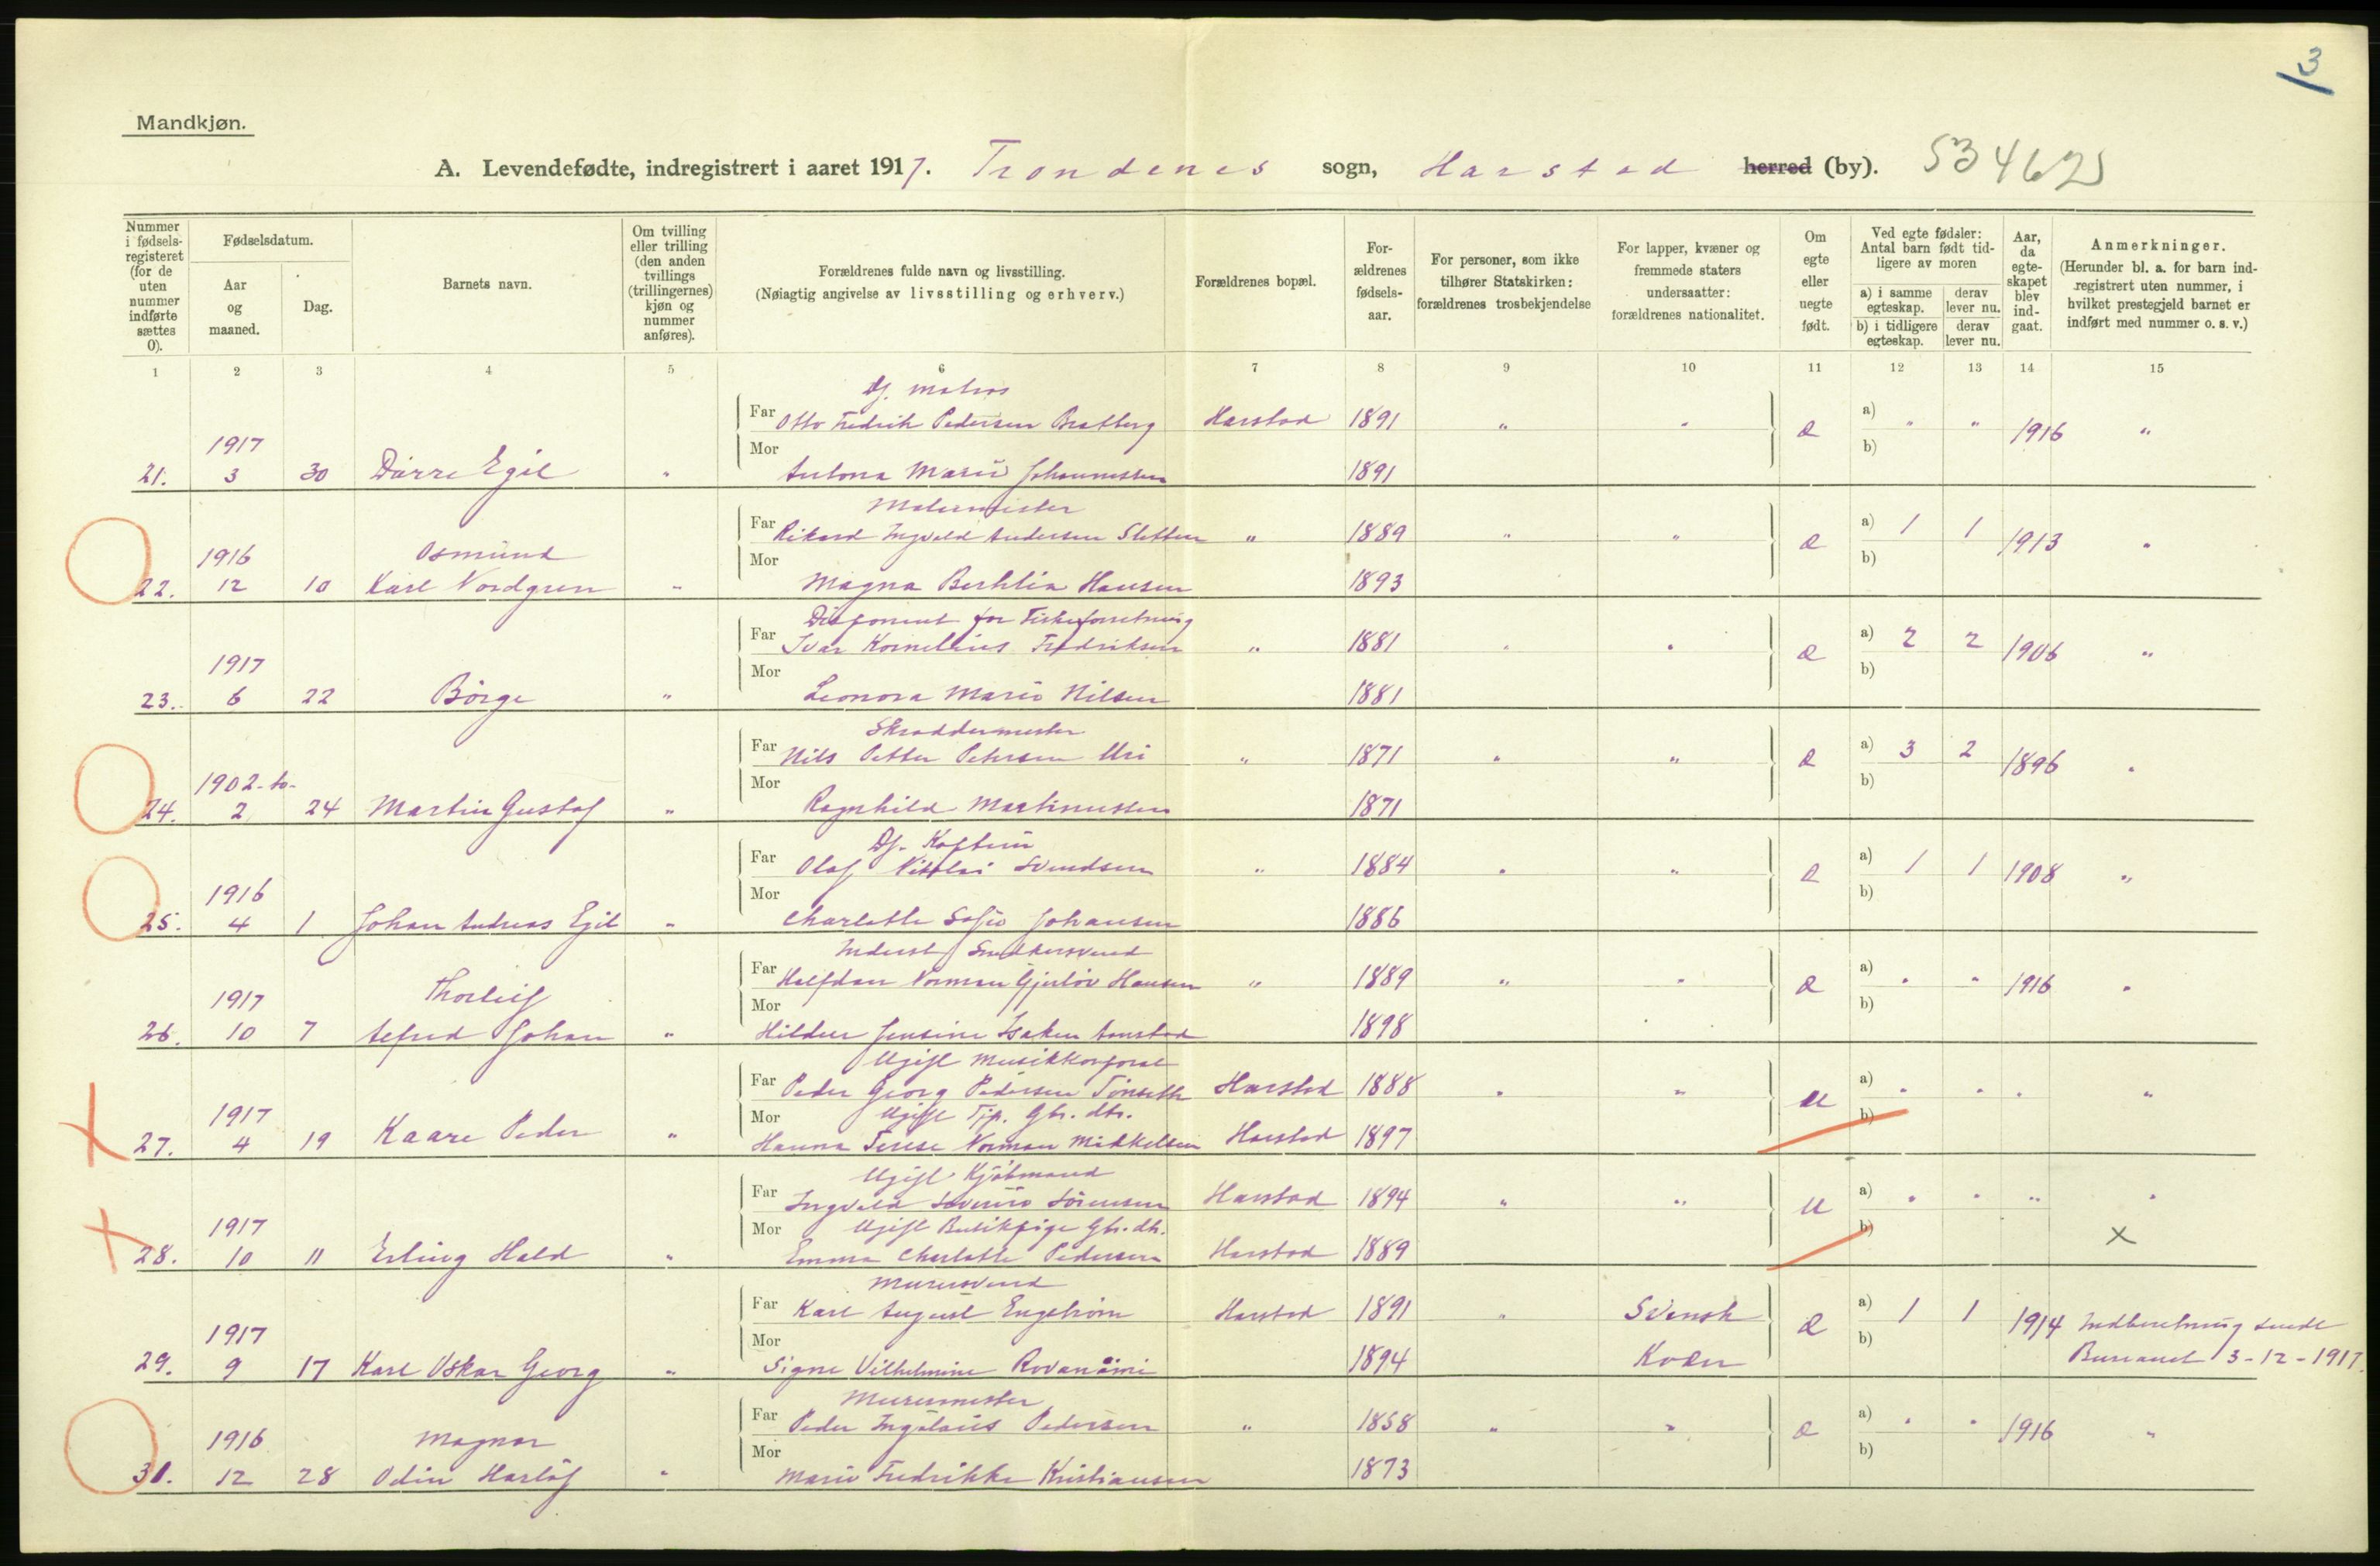 3
Mandkjøn.
A. Levendefødte, indregistrert i aaret 1917. Trondenes sogn, Harstad herred (by). 5346
Nummer i fødsels-registeret (for de uten nummer indførte sættes 0).
Fødselsdatum.
Aar og maaned.
Dag.
Barnets navn.
Om tvilling eller trilling (den anden tvillings (trillingernes) kjøn og nummer anføres).
Forældrenes fulde navn og livsstilling.
(Nøiagtig angivelse av livsstilling og erhverv.)
Forældrenes bopæl.
For-ældrenes fødsels-aar.
For personer, som ikke tilhører Statskirken: forældrenes trosbekjendelse
For lapper, kvæner og fremmede staters undersaatter: forældrenes nationalitet.
Om egte eller uegte født.
Ved egte fødsler: Antal barn født tid-ligere av moren
a) i samme egteskap. derav lever nu.
b) i tidligere egteskap. derav lever nu.
Aar, da egte-skapet blev ind-gaat.
Anmerkninger.
(Herunder bl. a. for barn ind-registrert uten nummer, i hvilket prestegjeld barnet er indført med nummer o. s. v.)
1 2 3 4 5 6 7 8 9 10 11 12 13 14 15
Df. matros
Far Otto Fredrik Pedersen Bratberg Harstad 1891 " " a) " " 1916 "
1917
Mor b)
21. 3 30 Egil " Antona Marie Johannessen 1891
Malermester
Far Rikard Ingvald Andersen Sletten " 1889 " " a) 1 1 1913 "
1916 Osmund
Mor b)
22. 12 10 Karl Nordgren " Magna Berhtin Hansen 1893
Disponent for Fiskeforretning
Far Ivar Kornelius Fredriksen " 1881 " " a) 2 2 1906 "
1917
Mor b)
23. 6 22 Børge " Leonora Marie Nilsen 1881
Skræddermester
Far Nils Petter Petersen Uri " 1871 " " a) 3 2 1896 "
1902-to-
Mor b)
24. 2 24 Martin Gustaf " Ragnhild Martinussen 1871
Df. Kaptein
Far Olaf Nikolai Svendsen " 1884 " " a) 1 1 1908 "
1916
Mor b)
25. 4 1 Johan Andreas Egil " Charlotte Sofie Johansen 1886
Inderst Snedkersvend
Far Halfdan Norman Hansen " 1889 " " a) " " 1916 "
1917 Thorleif
Mor b)
26. 10 7 Alfred Johan " Hildur Jensine Isaksen Aunstad 1898
Ugift Musikkorporal
Far Peder Georg Pedersen Tønseth Harstad 1888 " " U a) " " " "
1917
Mor Ugift Tjp. Gbr. dtr. b)
27. 4 19 Kaare Peder " Hanna Terese Norman Mikkelsen Harstad 1897
Ugift Kjøbmand
Far Ingvald Severin Sørensen Harstad 1894 " " U a) " " " "
1917
Mor Ugift Butikpige Gbr. dtr. b) x
28. 10 11 Erling Hald " Emma Charlotte Pedersen Harstad 1889
Murersvend
Far Karl August Engstrøm Harstad 1891 " Svensk a) 1 1 1914 Indberetning sendt
1917
Mor b)
29. 9 17 Karl Oskar Georg " Signe Vilhelmine Rovanaimi 1894 Kvæn Bureauet 3-12-1917.
Murermester
Far Peder Pedersen " 1858 " " a) " " 1916 "
1916 Magnar
Mor b)
30. 12 28 Odin Harløf " Marie Fredrikke Kristiansen 1873